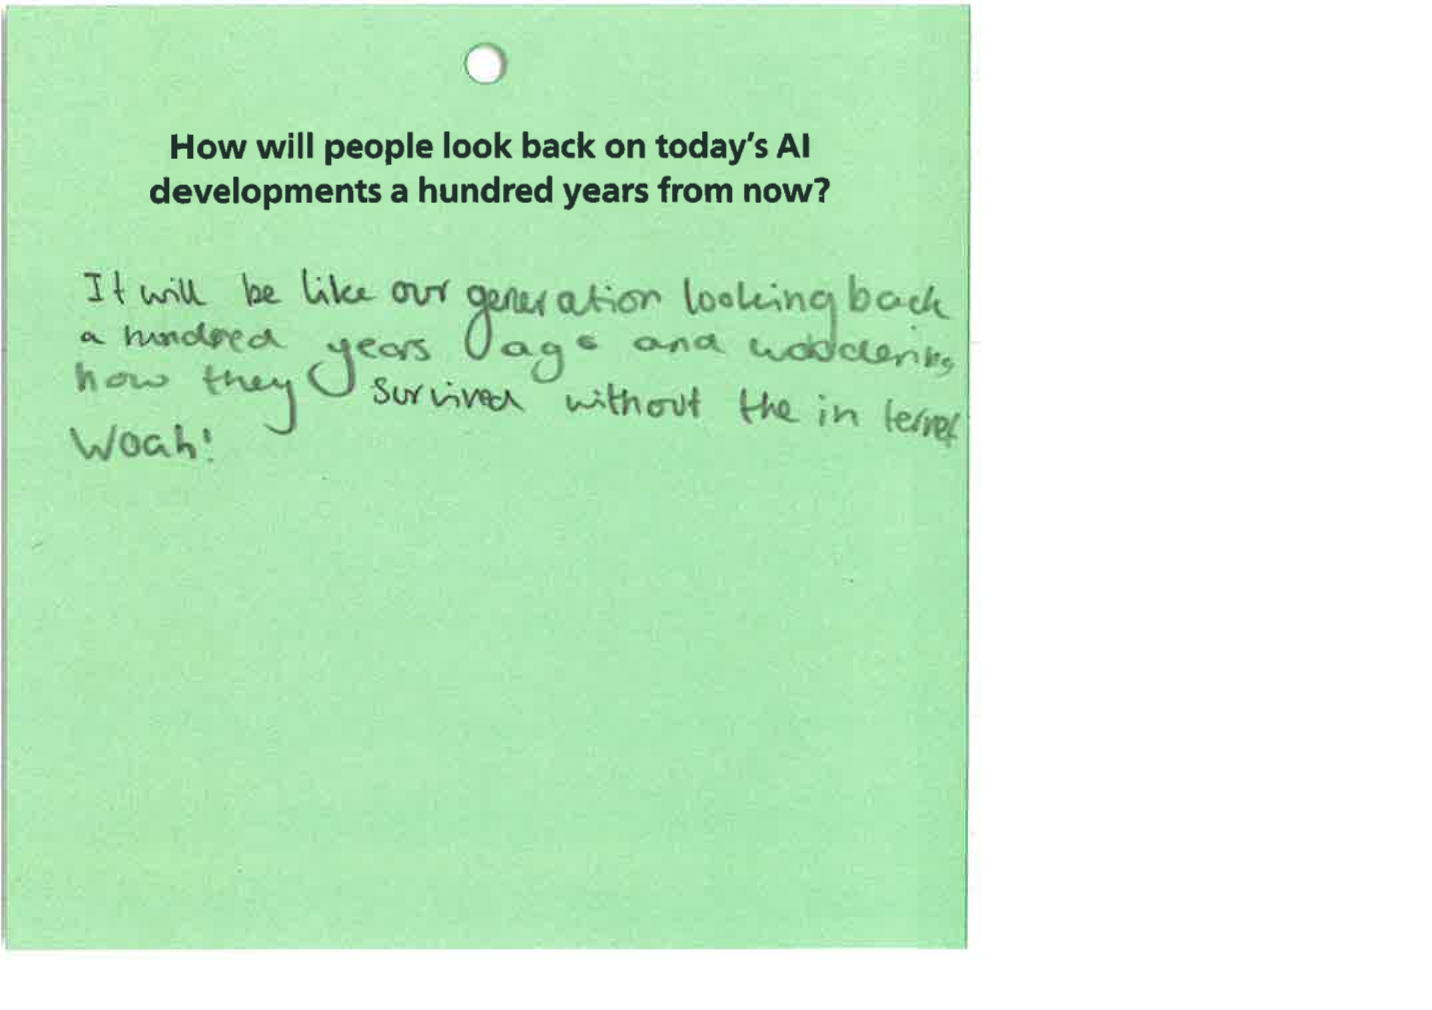 How will people look back on today's AI
developments a hundred years from now?
It will be like our generation looking back
a hundred years ago and wondering
how they survived without the internet
Woah!